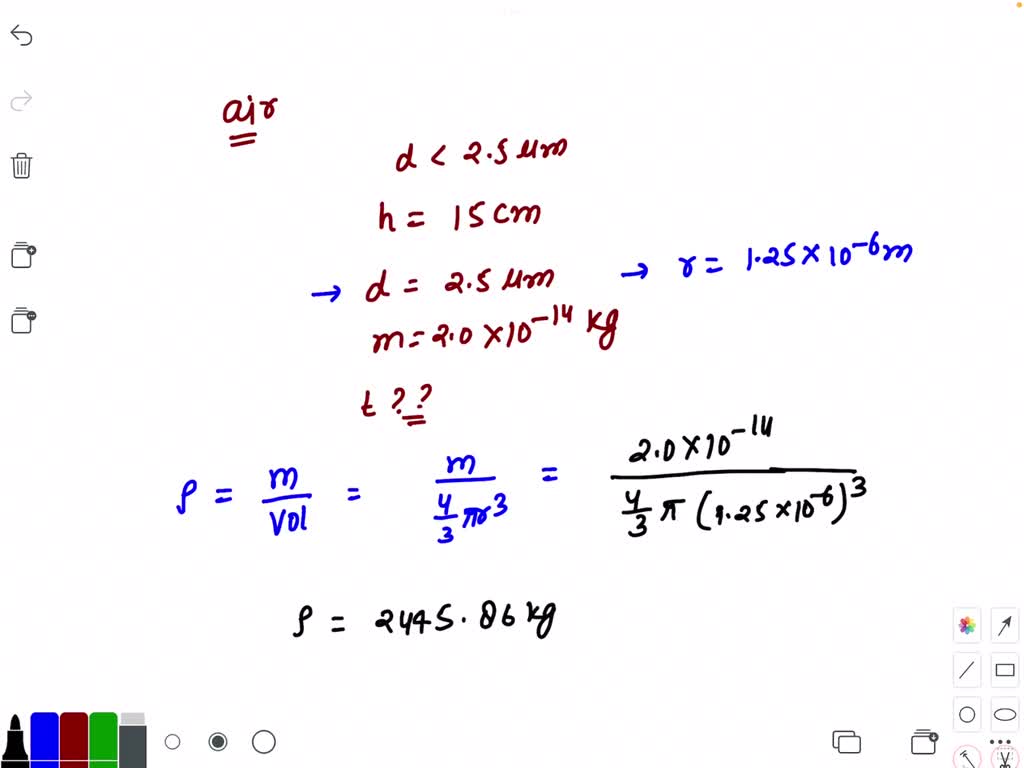 air
d < 2.5 μm
h = 15 cm
→ d = 2.5 μm → r = 1.25 × 10⁻⁶ m
m = 2.0 × 10⁻¹⁴ kg
t ??
ρ = m / Vol = m / (4/3 πr³) = 2.0 × 10⁻¹⁴ / (4/3 π (1.25 × 10⁻⁶)³)
ρ = 2445.86 kg